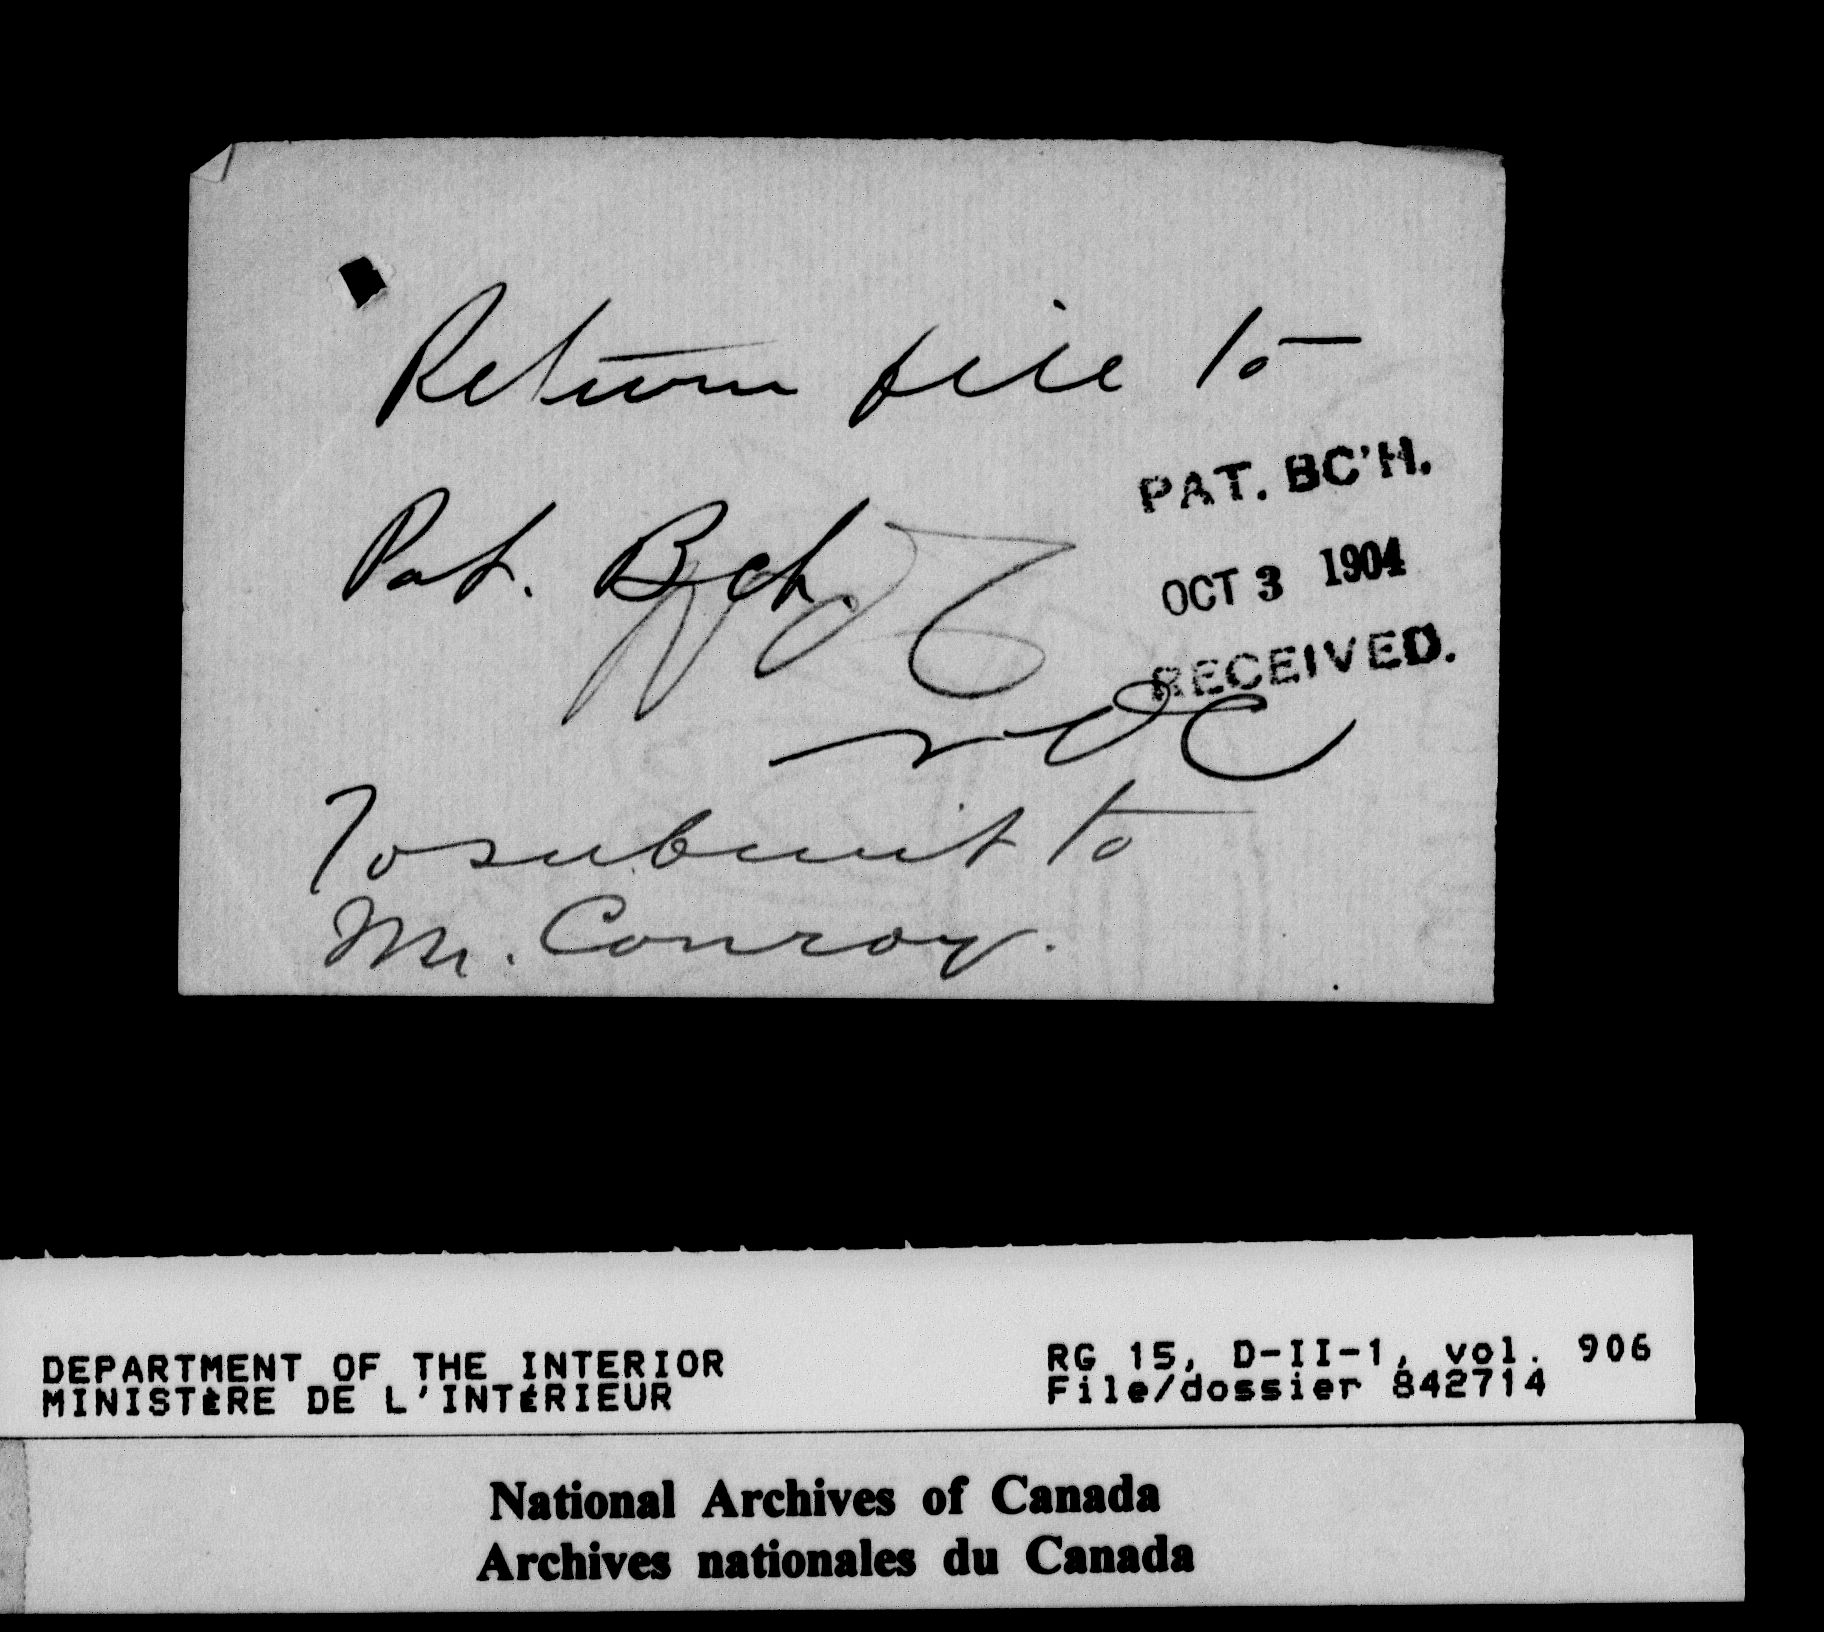 Return file to
Pat. Bch.
PAT. BC'H.
OCT 3 1904
RECEIVED.
To submit to
Mr. Conroy.
DEPARTMENT OF THE INTERIOR
MINISTÈRE DE L'INTÉRIEUR
RG 15, D-II-1, vol. 906
File/dossier 842714
National Archives of Canada
Archives nationales du Canada